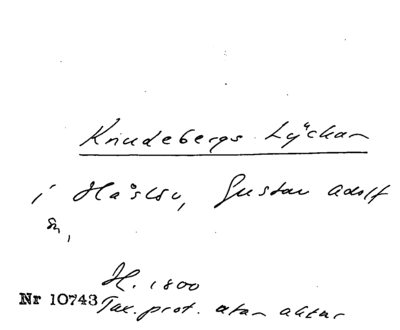 Knudebergs Lyckan
i Håslöv, Gustav Adolf
sn,
H. 1800
Nr 10743 Tax. prot. utan aktnr